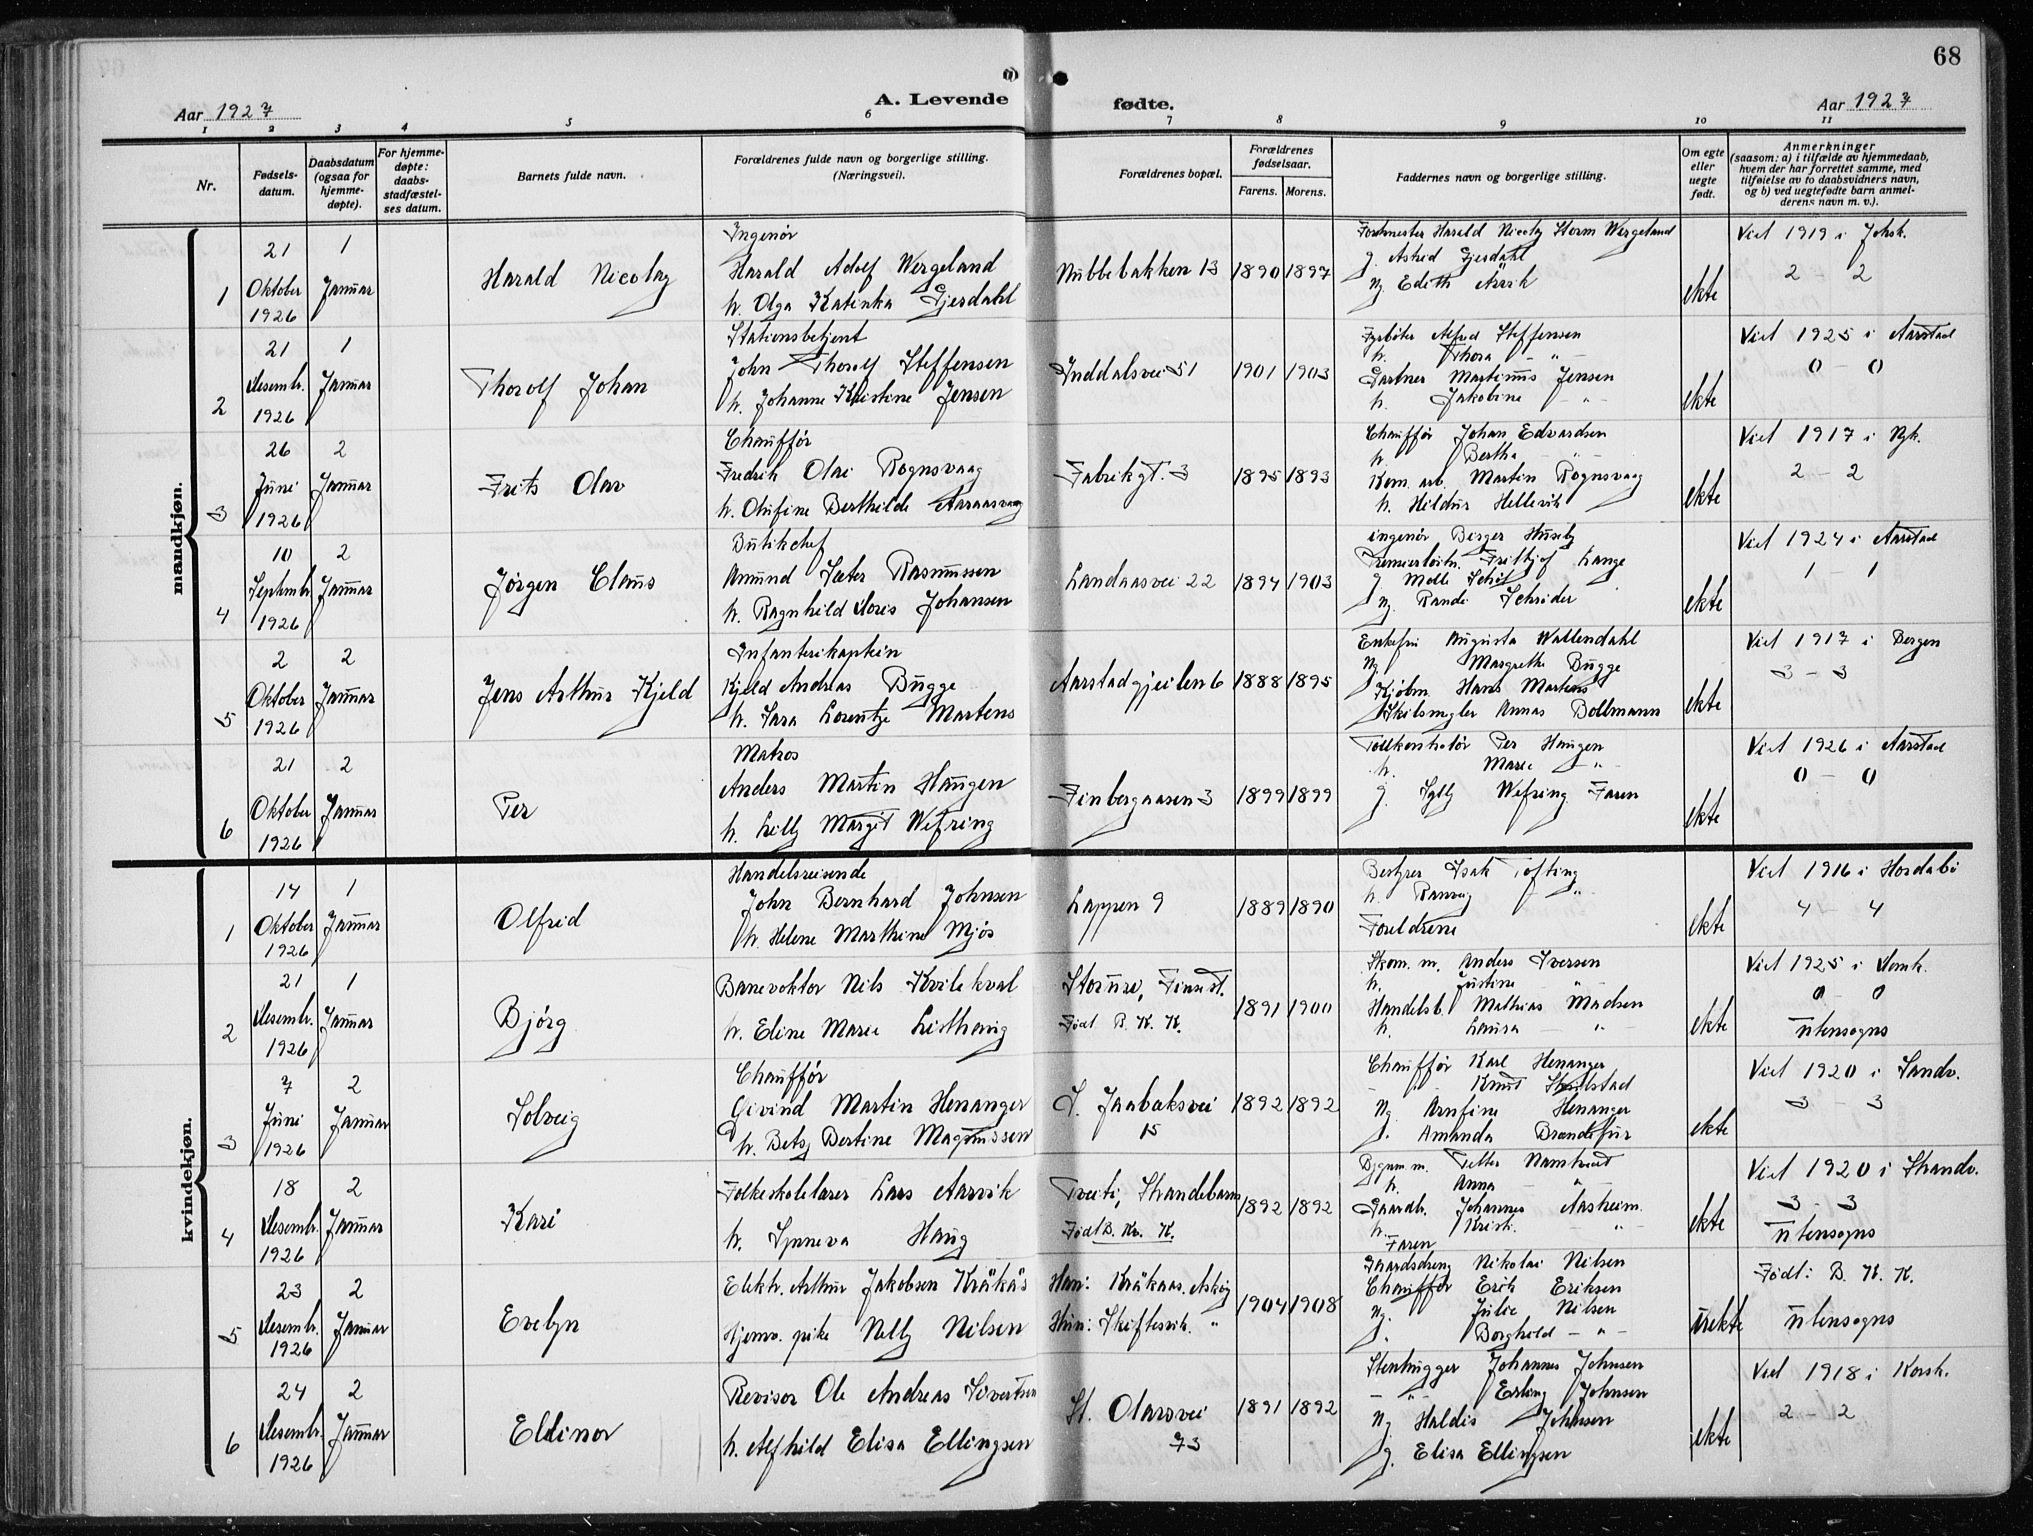 68
A. Levende fødte.
Aar 1927
Aar 1927
1 2 3 4 5 6 7 8 9 10 11
Nr.
Fødsels-
datum.
Daabsdatum
(ogsaa for
hjemme-
døpte).
For hjemme-
døpte:
daabs-
stadfæstel-
ses datum.
Barnets fulde navn.
Forældrenes fulde navn og borgerlige stilling.
(Næringsvei).
Forældrenes bopæl.
Forældrenes
fødselsaar.
Farens. Morens.
Faddernes navn og borgerlige stilling.
Om egte
eller
uegte
født.
Anmerkninger
(saasom: a) i tilfælde av hjemmedaab,
hvem der har forrettet samme, med
tilføielse av to daabsvidners navn,
og b) ved uegtefødte barn anmel-
derens navn m. v.).
mandkjøn.
1
21
Oktober
1926
1
Januar
Harald Nicolay
Ingenør
Harald Adolf Wergeland
h. Olga Katinka Gjesdahl
Nubbebakken 13
1890 1897
Harald Nicolay Storm Wergeland
g. Astrid Gjesdahl
Ug. Edith
ekte
Viet 1919 i Johsk.
2 – 2
2
21
Desembr.
1926
1
Januar
Thorolf Johan
Stationsbetjent
John Thorolf Steffensen
h. Johanne Kristine Jensen
Inddalsvei 51
1901 1903
Fyrbøter Alfred Steffensen
h. Thora – " –
Gartner Martinus Jensen
h. Jakobine – " –
ekte
Viet 1925 i Aarstad
0 – 0
3
26
Juni
1926
2
Januar
Frits Olav
Chauffør
Fredrik Olai Rognsvaag
h. Olufine Berthilde
Fabrikgt. 3
1895 1893
Chauffør Johan Edvardsen
h. Bertha – " –
Kom. arb. Martin Rognsvaag
h. Hildur Hellevik
ekte
Viet 1917 i Nyk.
2 – 2
4
10
Septembr.
1926
2
Januar
Jørgen Claus
Butikchef
Amund Sæter Rasmussen
h. Ragnhild Doris Johansen
Landaasvei 22
1894 1903
ingenør Birger Huseby
Premierløitn. Fritjof Lange
g. Molli
Ug. Randi Schrøder
ekte
Viet 1924 i Aarstad
1 – 1
5
2
Oktober
1926
2
Januar
Jens Arthur Kjeld
Infanterikaptein
Kjeld Andreas Bugge
h. Sara Lorentze Martens
Aarstadgjeilen 6
1888 1895
Enkefru Augusta Wallendahl
Ug. Margrethe Bugge
Kjøbm. Hans Martens
Skibsmegler Annas Bollmann
ekte
Viet 1917 i Bergen
3 – 3
6
21
Oktober
1926
2
Januar
Per
Matros
Anders Martin Haugen
h. Lilly Margit Wefring
Finbergaasen 3
1899 1899
Tollkontrolør Per Haugen
h. Marie – " –
g. Sylly Wefring Faren
ekte
Viet 1926 i Aarstad
0 – 0
kvindekjøn.
1
14
Oktober
1926
1
Januar
Olfrid
Handelsreisende
John Bernhard Johnsen
h. Helene Marthine Mjøs
Lappen 9
1889 1890
Bestyrer Isak Tofting
h. Ranveig – " –
Foreldrene
ekte
Viet 1916 i Hordabö
4 – 4
2
21
Desembr.
1926
1
Januar
Bjørg
Banevokter Nils Kvilekval
h. Eline Marie Listhaug
Storure, Finnst.
Født B. K. K.
1891 1900
Skom. m. Anders Iversen
h. Justine – " –
Handelsb. Mathias Madsen
h. Laura – " –
ekte
Viet 1925 i Domk.
0 – 0
utensogns
3
7
Juni
1926
2
Januar
Solveig
Chauffør
Øivind Martin Henanger
h. Betsy Bertine Magnussen
J. Jaabæksvei
15
1892 1892
Chauffør Karl Henanger
– " – Knut
Ug. Arnfine Henanger
g. Amanda
ekte
Viet 1920 i Sandv.
3 – 3
4
18
Desembr.
1926
2
Januar
Kari
Folkeskolelærer Lars Aarvik
h. Synneva Haug
Tveite, Strandebarm
Født B. Kv. K.
1892 1892
Bygnm. m. Petter Namtvedt
h. Anna – " –
Gaardbr. Johannes Aasheim
h. Krist. – " –
Faren
ekte
Viet 1920 i Strandv.
3 – 3
utensogns
5
23
Desembr.
1926
2
Januar
Evelyn
Elektr. Arthur Jakobsen Kråkås
Hjemv. pike Nelly Nilsen
Han: Kråkaas. Askøy
Hun: Skiftesvik. "
1904 1908
Gaardsdreng Nikolai Nilsen
Chauffør Erik Eriksen
Ug. Julie Nilsen
" Borghild – " –
uekte
Født: B. K. K.
utensogns
6
24
Desembr.
1926
2
Januar
Ellinor
Revisor Ole Andreas Sivertsen
h. Alfhild Elisa Ellingsen
St. Olavsvei
73
1891 1892
Stenhugger Johannes Johnsen
– " – Erling Johnsen
Ug. Haldis Johnsen
g. Elisa Ellingsen
ekte
Viet 1918 i Korsk.
2 – 2